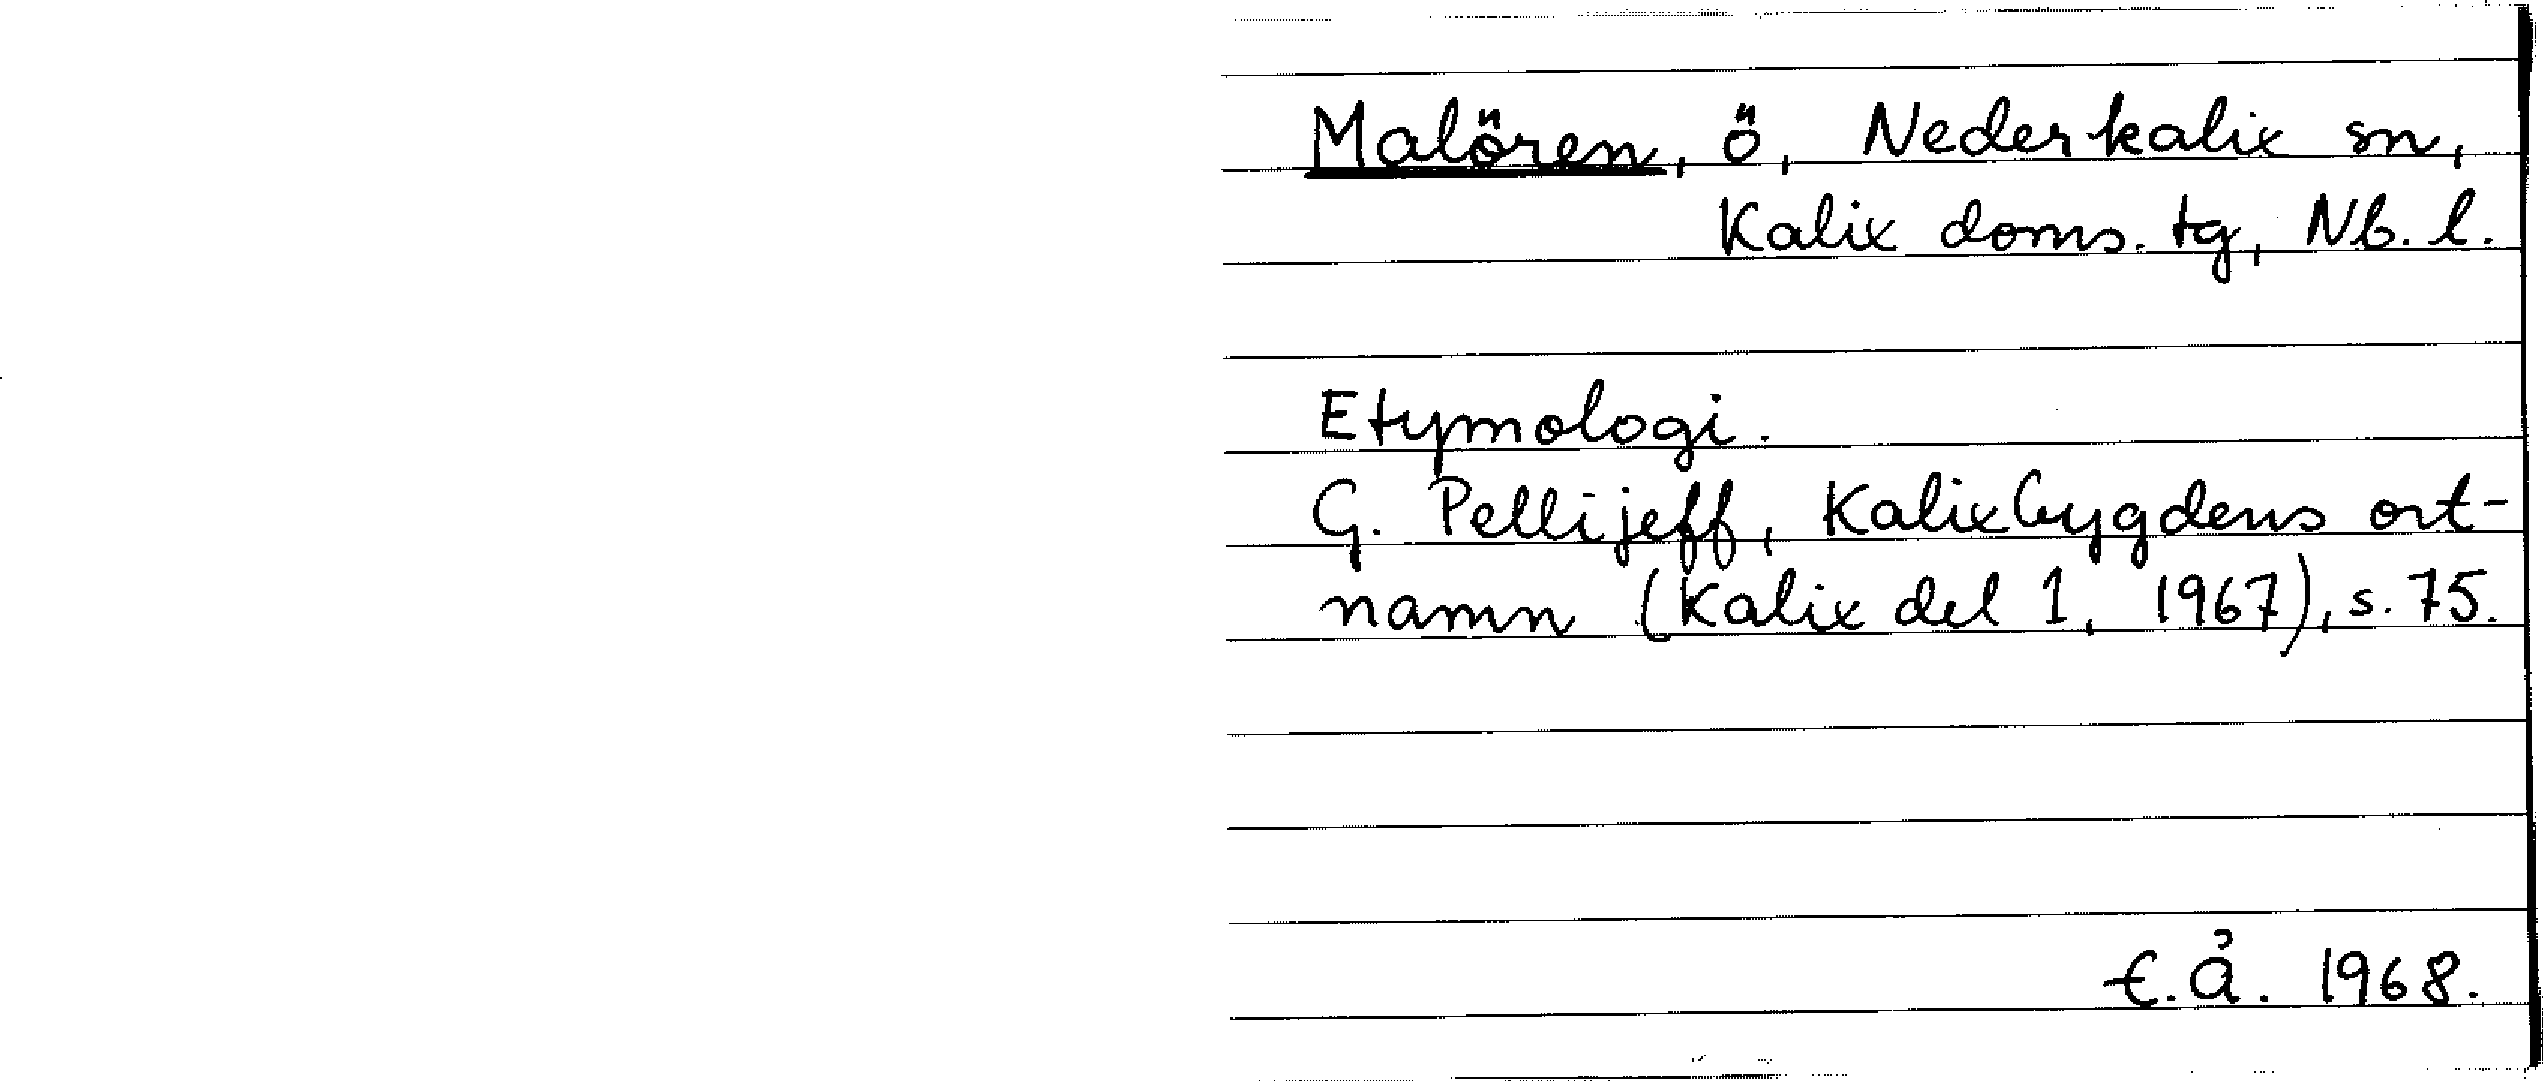 Malören, ö, Nederkalix sn,
Kalix doms. tg, Nb. l.
Etymologi.
G. Pellijeff, Kalixbygdens ort-
namn (Kalix del 1, 1967), s. 75.
E.Å. 1968.